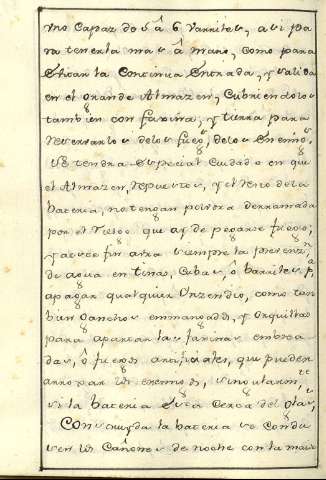 mo Capaz de 5 â 6 Varriles, asi pa
ra tenerla mas â mano, como para
Evitar la Continua Entrada, y salida
en el grande Almazen, Cubriendolo
tambien con faxina, y tierra para
reservarlo de los fuegos, de los Enemigos.
Se tendra Especial Cuidado en que
el Almazen, repuestos, y el resto de la
bateria, no tengan polvora derramada
por el riesgo que ay de pegarse fuego,
y a este fin avra siempre la prevenzon
de agua en tinas, Cubas, ô barriles pa
apagar qualquier Ynzendio, como tam
bien Ganchos enmangados, y Orquillas
para apartar las faxinas embrea
das, ô fuegos artifiziales, que pueden
arrojar los enemigos,
si la bateria Esta Cerca del
Construyda la bateria se Condu
cen los Cañones de noche con la maior